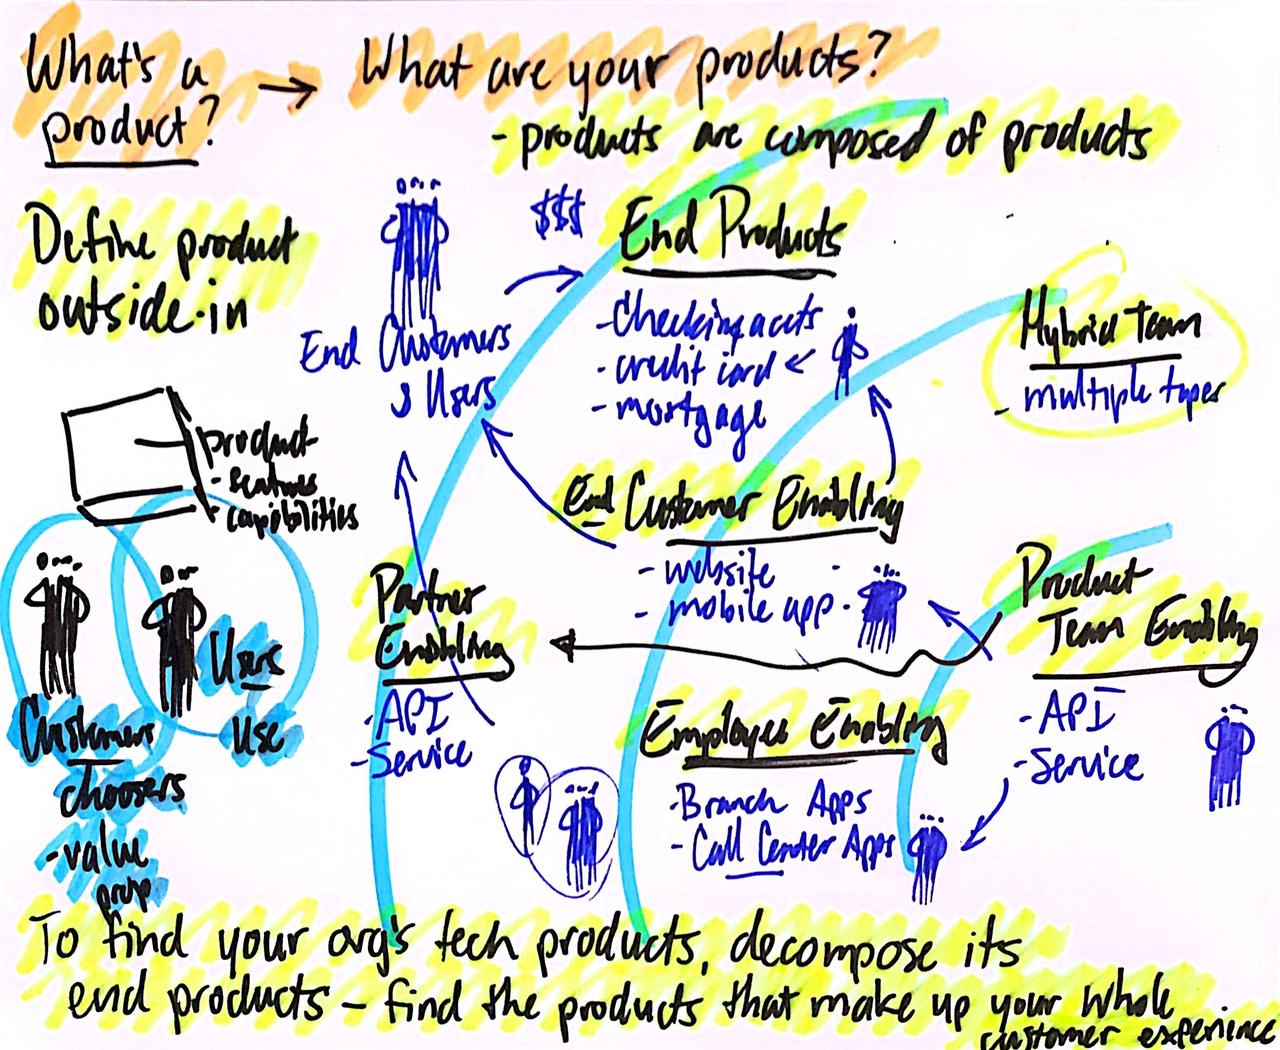 What's a
product?
What are your products?
- products are composed of products
Define product
outside-in
$$$
End Customers
& Users
End Products
- Checking accts
- credit card
- mortgage
Hybrid Team
- multiple types
product
- features
- capabilities
End Customer Enabling
- website
- mobile app
Partner
Enabling
- API
- Service
Product
Team Enabling
- API
- Service
Employee Enabling
- Branch Apps
- Call Center Apps
Users
Use
Customers
choosers
- value
prop
To find your org's tech products, decompose its
end products – find the products that make up your whole
customer experience